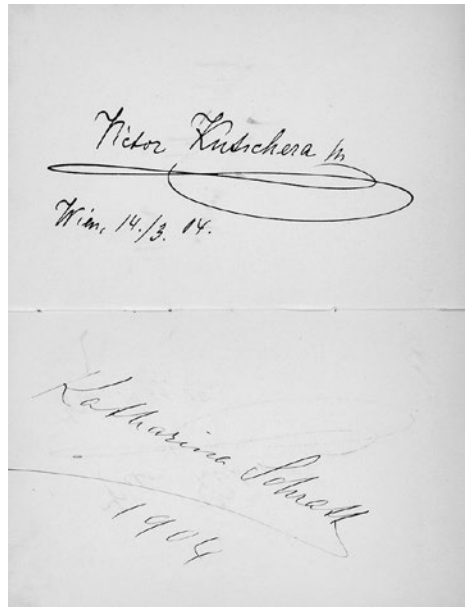 Victor Kutschera
Wien, 14./3. 04.
Katharina Schratt
1904